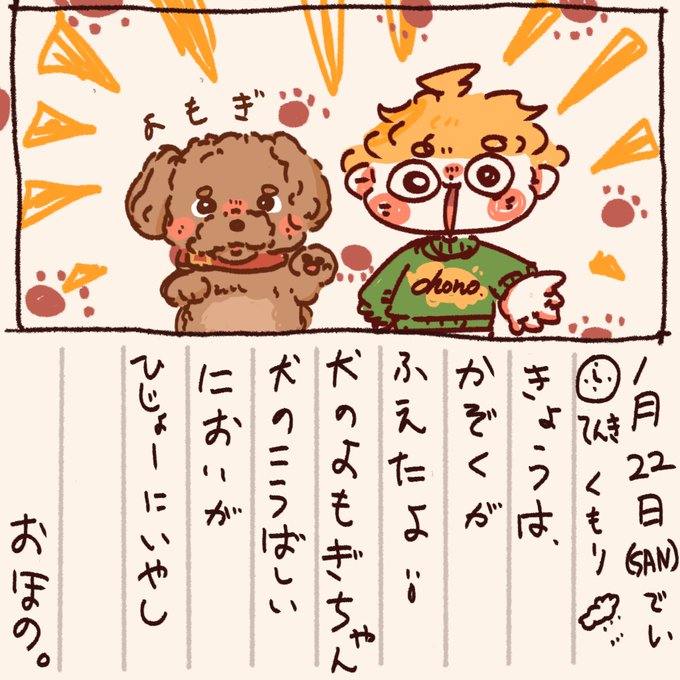 よもぎ
ohono
1月22日(SAN)でい
てんき くもり
きょうは、
かぞくが
ふえたよ!!
犬のよもぎちゃん
犬のこうばしい
においが
ひじょーにいやし
おほの。